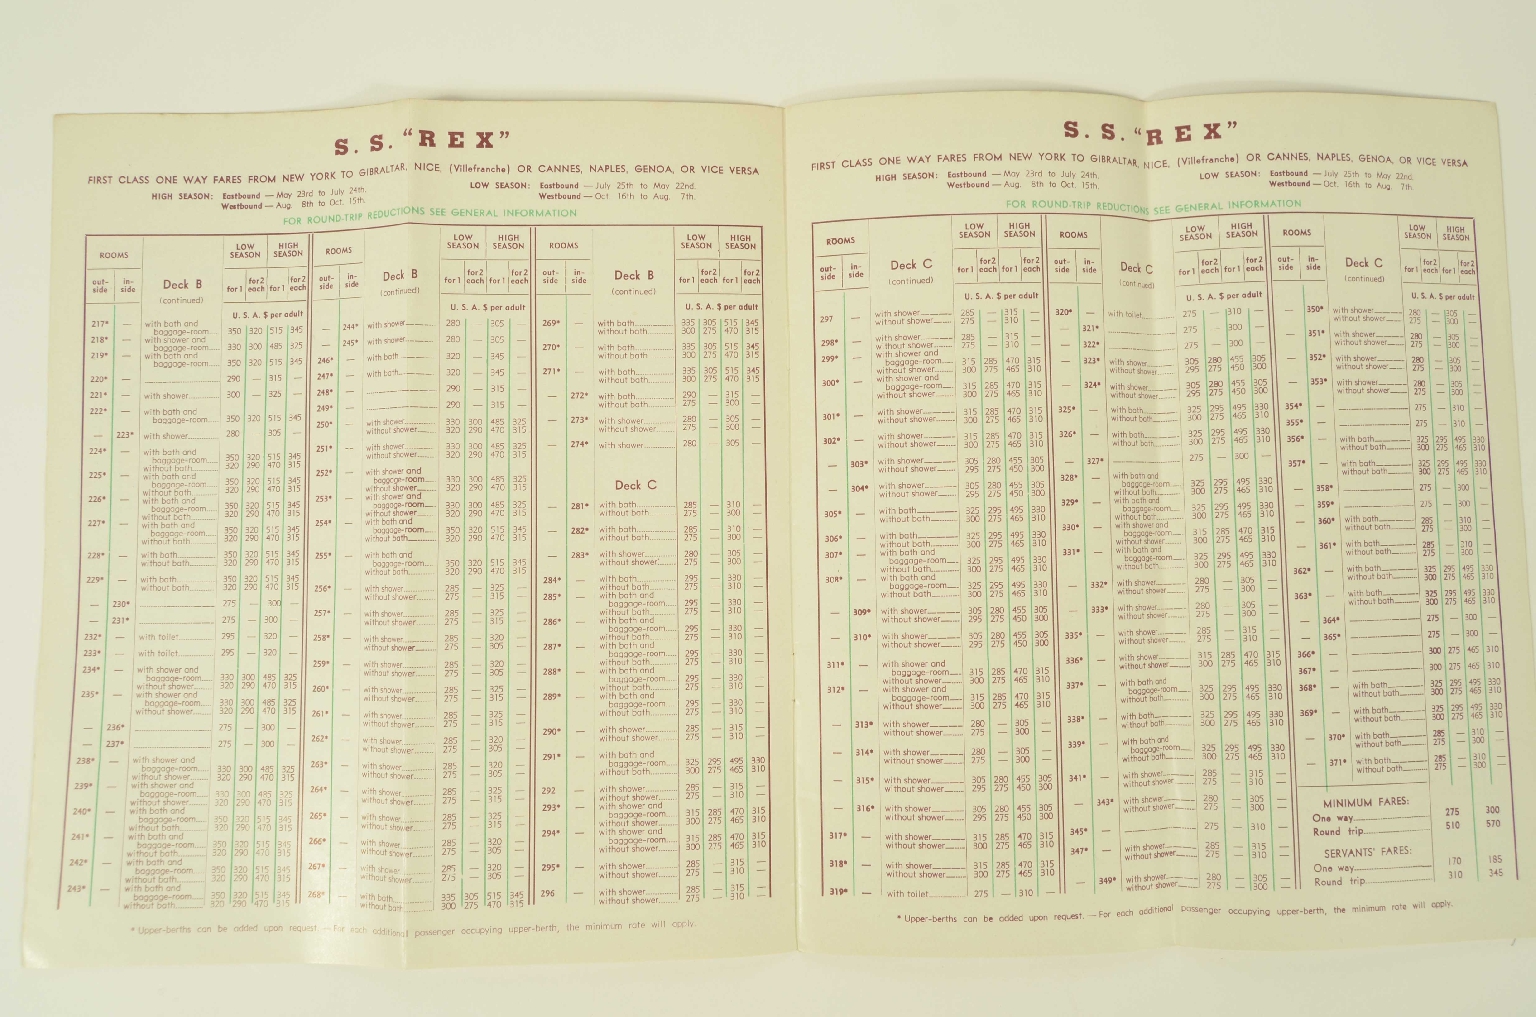 S. S. "REX"
FIRST CLASS ONE WAY FARES FROM NEW YORK TO GIBRALTAR, NICE, (Villefranche) OR CANNES, NAPLES, GENOA, OR VICE VERSA
HIGH SEASON: Eastbound — May 23rd to July 24th.
Westbound — Aug. 8th to Oct. 15th.
LOW SEASON: Eastbound — July 25th to May 22nd.
Westbound — Oct. 16th to Aug. 7th.
FOR ROUND-TRIP REDUCTIONS SEE GENERAL INFORMATION
ROOMS
out-side
in-side
Deck B
(continued)
LOW SEASON
HIGH SEASON
for 1
for 2 each
for 1
for 2 each
U. S. A. $ per adult
217* — with bath and
baggage-room 350 320 515 345
218* — with shower and
baggage-room 330 300 485 325
219* — with bath and
baggage-room 350 320 515 345
220* — 290 — 315 —
221* — with shower 300 — 325 —
222* — with bath and
baggage-room 350 320 515 345
— 223* with shower 280 305 —
224* — with bath and
baggage-room 350 320 515 345
without bath 320 290 470 315
225* — with bath and
baggage-room 350 320 515 345
without bath 320 290 470 315
226* — with bath and
baggage-room 350 320 515 345
without bath 320 290 470 315
227* — with bath and
baggage-room 350 320 515 345
228* — with bath 350 320 515 345
without bath 320 290 470 315
229* — with bath 350 320 515 345
without bath 320 290 470 315
— 230* 275 — 300 —
— 231* 275 — 300
232* — with toilet 295 — 320 —
233* — with toilet 295 — 320 —
234* — with shower and
baggage-room 330 300 485 325
without shower 320 290 470 315
235* — with shower and
baggage-room 330 300 485 325
without shower 320 290 470 315
— 236* 275 — 300 —
— 237* 275 — 300 —
238* — with shower and
baggage-room 330 300 485 325
without shower 320 290 470 315
239* — with shower and
baggage-room 330 300 485 325
without shower 320 290 470 315
240* — with bath and
baggage-room 350 320 515 345
without bath 320 290 470 315
241* — with bath and
baggage-room 350 320 515 345
without bath 320 290 470 315
242* — with bath and
baggage-room 350 320 515 345
without bath 320 290 470 315
243* — with bath and
baggage-room 350 320 515 345
without bath 320 290 470 315
Deck B
(continued)
— 244* with shower 280 — 305 —
— 245* with shower 280 — 305 —
246* — with bath 320 — 345 —
247* — with bath 320 — 345 —
248* — 290 — 315 —
249* — 290 — 315 —
250* — with shower 330 300 485 325
without shower 320 290 470 315
251* — with shower 330 300 485 325
without shower 320 290 470 315
252* — with shower and
baggage-room 330 300 485 325
without shower 320 290 470 315
253* — with shower and
baggage-room 330 300 485 325
without shower 320 290 470 315
254* — with bath and
baggage-room 350 320 515 345
without bath 320 290 470 315
255* — with bath and
baggage-room 350 320 515 345
without bath 320 290 470 315
256* — with shower 285 — 325 —
without shower 275 — 315 —
257* — with shower 285 — 325 —
without shower 275 — 315 —
258* — with shower 285 — 320 —
without shower 275 — 305 —
259* — with shower 285 — 320 —
without shower 275 — 305 —
260* — with shower 285 — 325 —
without shower 275 — 315 —
261* — with shower 285 — 325 —
without shower 275 — 315 —
262* — with shower 285 — 320 —
without shower 275 — 305 —
263* — with shower 285 — 320 —
without shower 275 — 305 —
264* — with shower 285 — 325 —
without shower 275 — 315 —
265* — with shower 285 — 325 —
without shower 275 — 315 —
266* — with shower 285 — 320 —
without shower 275 — 305 —
267* — with shower 285 — 320 —
without shower 275 — 305 —
268* — with bath 335 305 515 345
without bath 300 275 470 315
Deck B
(continued)
269* — with bath 335 305 515 345
without bath 300 275 470 315
270* — with bath 335 305 515 345
without bath 300 275 470 315
271* — with bath 335 305 515 345
without bath 300 275 470 315
— 272* with bath 290 — 315 —
without bath 275 — 300 —
— 273* with shower 280 — 305 —
without shower 275 — 300 —
— 274* with shower 280 — 305 —
Deck C
— 281* with bath 285 — 310 —
without bath 275 — 300 —
— 282* with bath 285 — 310 —
without bath 275 — 300 —
— 283* with shower 280 — 305 —
without shower 275 — 300 —
284* — with bath 295 — 330 —
without bath 275 — 310 —
285* — with bath and
baggage-room 295 — 330 —
without bath 275 — 310 —
286* — with bath and
baggage-room 295 — 330 —
without bath 275 — 310 —
287* — with bath and
baggage-room 295 — 330 —
without bath 275 — 310 —
288* — with bath and
baggage-room 295 — 330 —
without bath 275 — 310 —
289* — with bath and
baggage-room 295 — 330 —
without bath 275 — 310 —
290* — with shower 285 — 315 —
without shower 275 — 310 —
291* — with bath and
baggage-room 325 295 495 330
without bath 300 275 465 310
292 — with shower 285 — 315 —
without shower 275 — 310 —
293* — with shower and
baggage-room 315 285 470 315
without shower 300 275 465 310
294* — with shower and
baggage-room 315 285 470 315
without shower 300 275 465 310
295* — with shower 285 — 315 —
without shower 275 — 310 —
296 — with shower 285 — 315 —
without shower 275 — 310 —
* Upper-berths can be added upon request. — For each additional passenger occupying upper-berth, the minimum rate will apply.
S. S. "REX"
FIRST CLASS ONE WAY FARES FROM NEW YORK TO GIBRALTAR, NICE, (Villefranche) OR CANNES, NAPLES, GENOA, OR VICE VERSA
HIGH SEASON: Eastbound — May 23rd to July 24th.
Westbound — Aug. 8th to Oct. 15th.
LOW SEASON: Eastbound — July 25th to May 22nd.
Westbound — Oct. 16th to Aug. 7th.
FOR ROUND-TRIP REDUCTIONS SEE GENERAL INFORMATION
ROOMS
out-side
in-side
Deck C
(continued)
LOW SEASON
HIGH SEASON
for 1
for 2 each
for 1
for 2 each
U. S. A. $ per adult
297 with shower 285 — 315 —
without shower 275 — 310 —
298* — with shower 285 — 315 —
without shower 275 — 310 —
299* — with shower and
baggage-room 315 285 470 315
without shower 300 275 465 310
300* — with shower and
baggage-room 315 285 470 315
without shower 300 275 465 310
301* — with shower 315 285 470 315
without shower 300 275 465 310
302* — with shower 315 285 470 315
without shower 300 275 465 310
— 303* with shower 305 280 455 305
without shower 295 275 450 300
— 304* with shower 305 280 455 305
without shower 295 275 450 300
305* — with bath 325 295 495 330
without bath 300 275 465 310
306* — with bath 325 295 495 330
without bath 300 275 465 310
307* — with bath and
baggage-room 325 295 495 330
without bath 300 275 465 310
308* — with bath and
baggage-room 325 295 495 330
without bath 300 275 465 310
— 309* with shower 305 280 455 305
without shower 295 275 450 300
— 310* with shower 305 280 455 305
without shower 295 275 450 300
311* — with shower and
baggage-room 315 285 470 315
without shower 300 275 465 310
312* — with shower and
baggage-room 315 285 470 315
without shower 300 275 465 310
— 313* with shower 280 — 305 —
without shower 275 — 300 —
— 314* with shower 280 — 305 —
without shower 275 — 300 —
— 315* with shower 305 280 455 305
without shower 295 275 450 300
— 316* with shower 305 280 455 305
without shower 295 275 450 300
317* — with shower 315 285 470 315
without shower 300 275 465 310
318* — with shower 315 285 470 315
without shower 300 275 465 310
319* — with toilet 275 — 310 —
Deck C
(continued)
320* — with toilet 275 — 310 —
— 321* 275 — 300 —
— 322* 275 — 300 —
— 323* with shower 305 280 455 305
without shower 295 275 450 300
— 324* with shower 305 280 455 305
without shower 295 275 450 300
325* — with bath 325 295 495 330
without bath 300 275 465 310
326* — with bath 325 295 495 330
without bath 300 275 465 310
— 327* 275 — 300 —
328* — with bath and
baggage-room 325 295 495 330
without bath 300 275 465 310
329* — with bath and
baggage-room 325 295 495 330
without bath 300 275 465 310
330* — with shower and
baggage-room 315 285 470 315
without shower 300 275 465 310
331* — with bath and
baggage-room 325 295 495 330
without bath 300 275 465 310
— 332* with shower 280 — 305 —
without shower 275 — 300 —
— 333* with shower 280 — 305 —
without shower 275 — 300 —
335* — with shower 285 — 315 —
without shower 275 — 310 —
336* — with shower 315 285 470 315
without shower 300 275 465 310
337* — with bath and
baggage-room 325 295 495 330
without bath 300 275 465 310
338* — with bath 325 295 495 330
without bath 300 275 465 310
339* — with bath and
baggage-room 325 295 495 330
without bath 300 275 465 310
341* — with shower 285 — 315 —
without shower 275 — 310 —
— 343* with shower 280 — 305 —
without shower 275 — 300 —
345* — 275 — 310 —
347* — with shower 285 — 315 —
without shower 275 — 310 —
— 349* with shower 280 — 305 —
without shower 275 — 300 —
Deck C
(continued)
— 350* with shower 280 — 305 —
without shower 275 — 300 —
— 351* with shower 280 — 305 —
without shower 275 — 300 —
— 352* with shower 280 — 305 —
without shower 275 — 300 —
— 353* with shower 280 — 305 —
without shower 275 — 300 —
354* — 275 — 310 —
355* — 275 — 310 —
356* — with bath 325 295 495 330
without bath 300 275 465 310
357* — with bath 325 295 495 330
without bath 300 275 465 310
— 358* 275 — 300 —
— 359* 275 — 300 —
— 360* with bath 285 — 310 —
without bath 275 — 300 —
— 361* with bath 285 — 210 —
without bath 275 — 300 —
362* — with bath 325 295 495 330
without bath 300 275 465 310
363* — with bath 325 295 495 330
without bath 300 275 465 310
— 364* 275 — 300 —
— 365* 275 — 300 —
366* — 300 275 465 310
367* — 300 275 465 310
368* — with bath 325 295 495 330
without bath 300 275 465 310
369* — with bath 325 295 495 330
without bath 300 275 465 310
— 370* with bath 285 — 310 —
without bath 275 — 300 —
— 371* with bath 285 — 310 —
without bath 275 — 300 —
MINIMUM FARES:
One way 275 300
Round trip 510 570
SERVANTS' FARES:
One way 170 185
Round trip 310 345
* Upper-berths can be added upon request. — For each additional passenger occupying upper-berth, the minimum rate will apply.